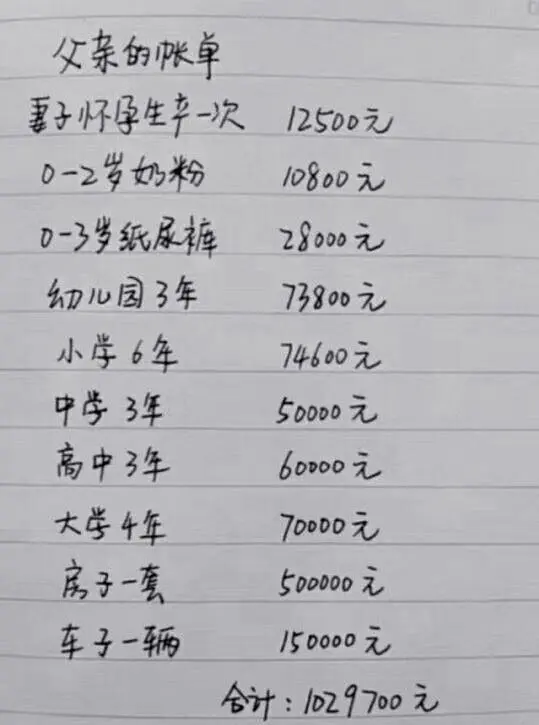 父亲的帐单
妻子怀孕生产一次 12500元
0-2岁奶粉 10800元
0-3岁纸尿裤 28000元
幼儿园3年 73800元
小学6年 74600元
中学3年 50000元
高中3年 60000元
大学4年 70000元
房子一套 500000元
车子一辆 150000元
合计:1029700元